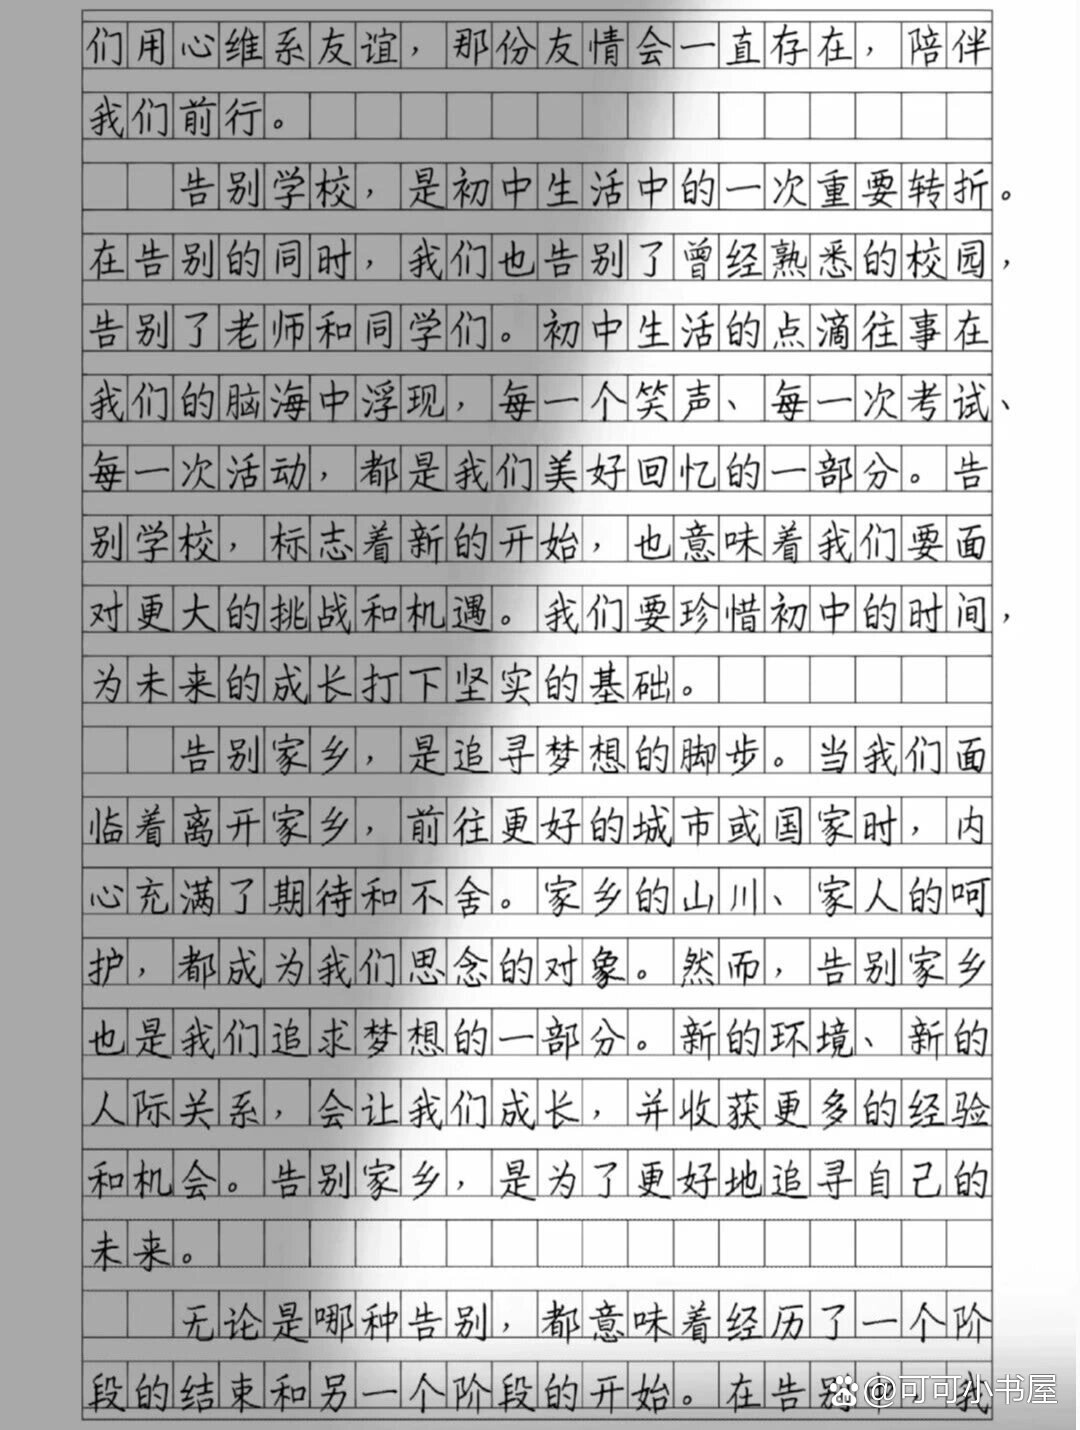 们用心维系友谊，那份友情会一直存在，陪伴
我们前行。
告别学校，是初中生活中的一次重要转折。
在告别的同时，我们也告别了曾经熟悉的校园，
告别了老师和同学们。初中生活的点滴往事在
我们的脑海中浮现，每一个笑声、每一次考试、
每一次活动，都是我们美好回忆的一部分。告
别学校，标志着新的开始，也意味着我们要面
对更大的挑战和机遇。我们要珍惜初中的时间，
为未来的成长打下坚实的基础。
告别家乡，是追寻梦想的脚步。当我们面
临着离开家乡，前往更好的城市或国家时，内
心充满了期待和不舍。家乡的山川、家人的呵
护，都成为我们思念的对象。然而，告别家乡
也是我们追求梦想的一部分。新的环境、新的
人际关系，会让我们成长，并收获更多的经验
和机会。告别家乡，是为了更好地追寻自己的
未来。
无论是哪种告别，都意味着经历了一个阶
段的结束和另一个阶段的开始。在告别中，我
@可可小书屋